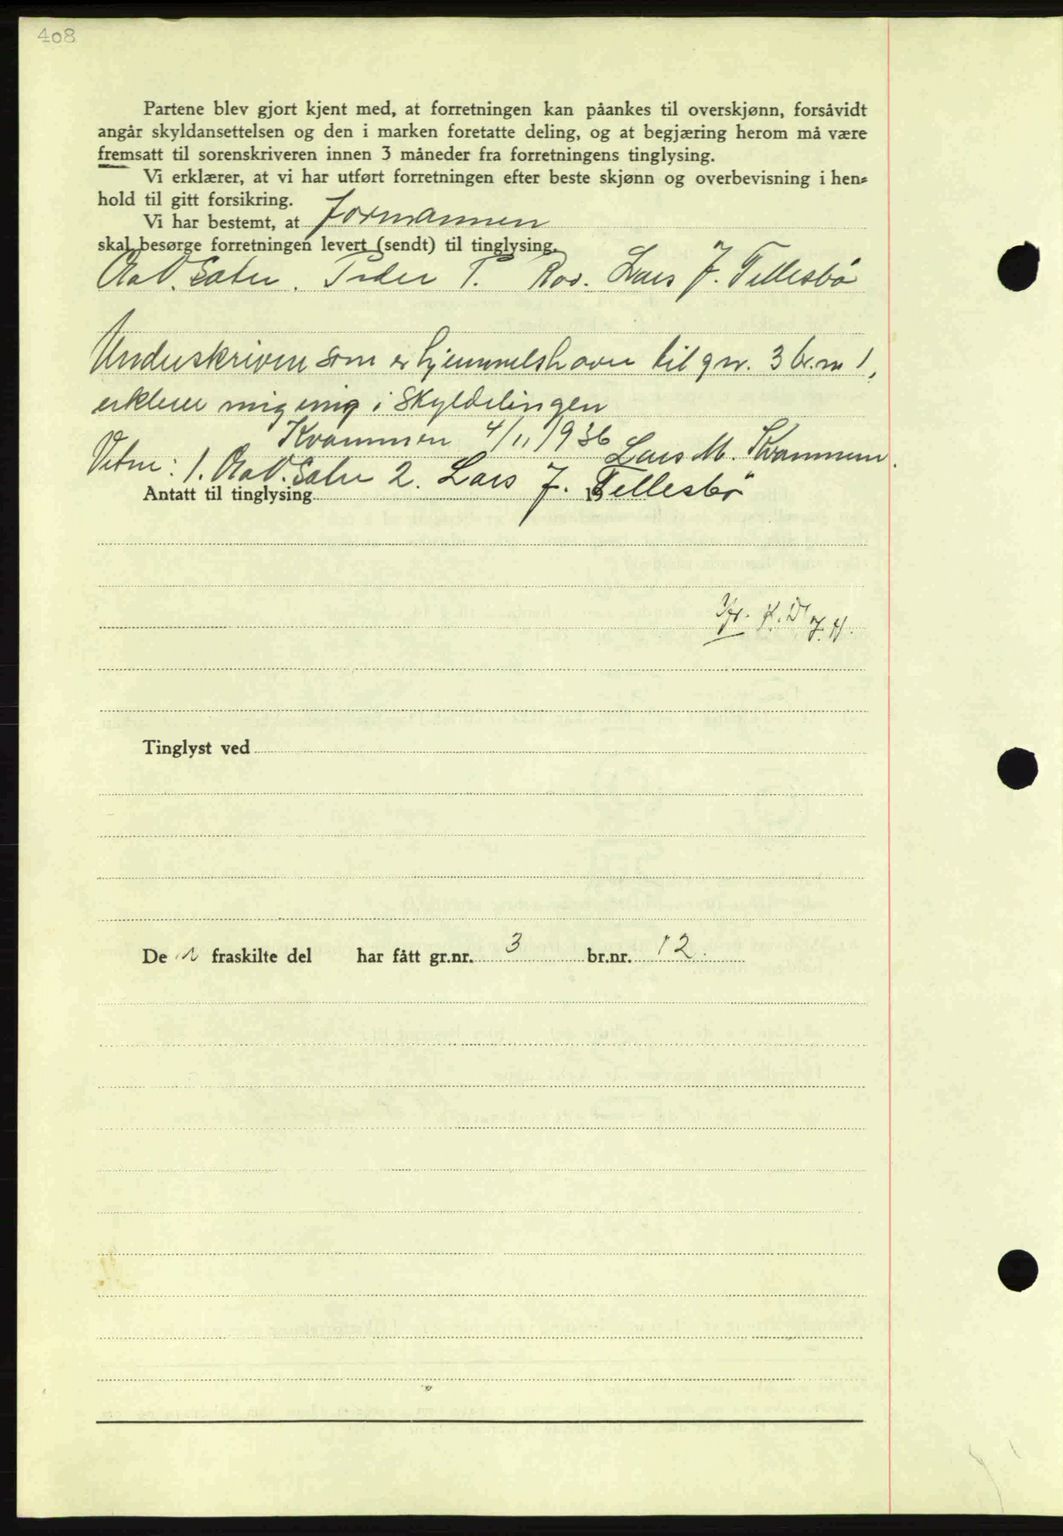 408
Partene blev gjort kjent med, at forretningen kan påankes til overskjønn, forsåvidt
angår skyldansettelsen og den i marken foretatte deling, og at begjæring herom må være
fremsatt til sorenskriveren innen 3 måneder fra forretningens tinglysing.
Vi erklærer, at vi har utført forretningen efter beste skjønn og overbevisning i hen-
hold til gitt forsikring.
Vi har bestemt, at formannen
skal besørge forretningen levert (sendt) til tinglysing.
Peder T. Lars J. Tellesbø
Underskriven som er hjemmelshaver til gnr. 3 br.nr 1,
erklerer mig enig i Skyldelingen
Kvammen 4/11 1936 Lars M. Kvammen.
Vitne: 1. 2. Lars J. Tellesbø
Antatt til tinglysing 19
J.H.
Tinglyst ved
De n fraskilte del har fått gr.nr. 3 br.nr. 12.